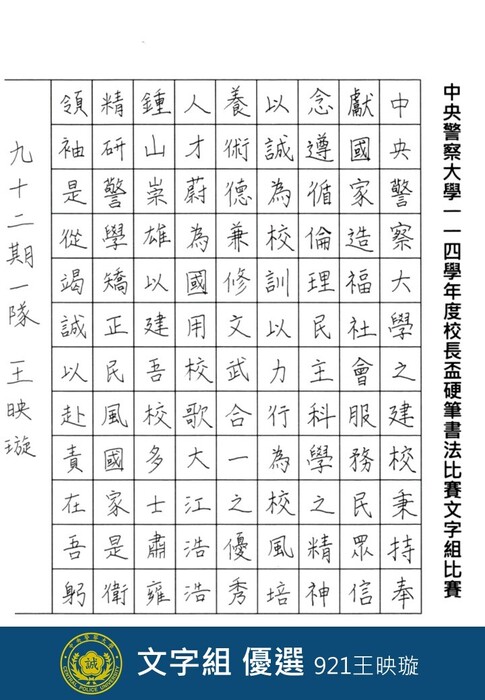 中央警察大學一一四學年度校長盃硬筆書法比賽文字組比賽
中央警察大學之建校秉持奉
獻國家造福社會服務民眾信
念遵循倫理民主科學之精神
以誠為校訓以力行為校風培
養術德兼修文武合一之優秀
人才蔚為國用校歌大江浩浩
鍾山崇雄以建吾校多士肅雍
精研警學矯正民風國家是衛
領袖是從竭誠以赴責在吾躬
九十二期一隊 王映璇
中央警察大學
誠
CENTRAL POLICE UNIVERSITY
文字組 優選 921王映璇